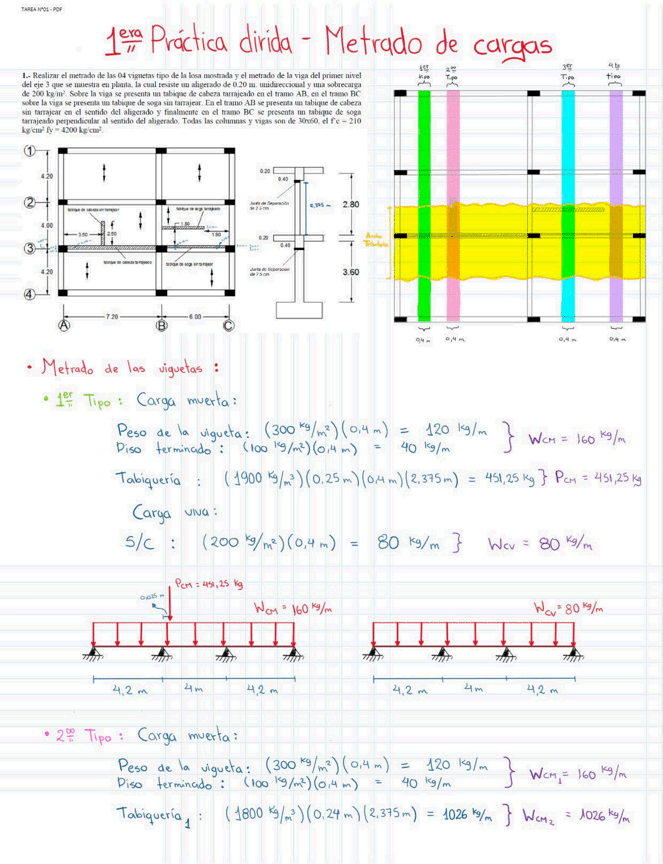 TAREA N°01 - PDF
1era Práctica dirida - Metrado de cargas
1.- Realizar el metrado de las 04 vignetas tipo de la losa mostrada y el metrado de la viga del primer nivel
del eje 3 que se muestra en planta, la cual resiste un aligerado de 0.20 m. unidireccional y una sobrecarga
de 200 kg/m². Sobre la viga se presenta un tabique de cabeza tarrajeado en el tramo AB, en el tramo BC
sobre la viga se presenta un tabique de soga sin tarrajear. En el tramo AB se presenta un tabique de cabeza
sin tarrajear en el sentido del aligerado y finalmente en el tramo BC se presenta un tabique de soga
tarrajeado perpendicular al sentido del aligerado. Todas las columnas y vigas son de 30x60, el f'c = 210
kg/cm² fy = 4200 kg/cm².
1er tipo
2do Tipo
3er Tipo
4to tipo
1
4.20
2
4.00
3
4.20
4
tabique de cabeza sin tarrajear
tabique de soga tarrajeado
3.60
2.00
1.80
1.50
tabique de cabeza tarrajeado
tabique de soga sin tarrajear
7.20
6.00
A
B
C
0.20
0.40
Junta de Separación
de 2.5 cm
2,375 m
2.80
0.20
0.40
Junta de Separación
de 2.5 cm
3.60
Ancho
Tributario
0,4 m
0,4 m
0,4 m
0,4 m
• Metrado de las viguetas :
• 1er Tipo : Carga muerta:
Peso de la vigueta: (300 kg/m²)(0,4 m) = 120 kg/m
Piso terminado : (100 kg/m²)(0,4 m) = 40 kg/m } WCM = 160 kg/m
Tabiquería : (1900 kg/m³)(0,25 m)(0,4 m)(2,375 m) = 451,25 kg } PCM = 451,25 kg
Carga viva:
S/C : (200 kg/m²)(0,4 m) = 80 kg/m } WCV = 80 kg/m
PCM = 451,25 kg
WCM = 160 kg/m
WCV = 80 kg/m
4,2 m
4 m
4,2 m
4,2 m
4 m
4,2 m
• 2do Tipo : Carga muerta:
Peso de la vigueta: (300 kg/m²)(0,4 m) = 120 kg/m
Piso terminado : (100 kg/m²)(0,4 m) = 40 kg/m } WCM1 = 160 kg/m
Tabiquería1 : (1800 kg/m³)(0,24 m)(2,375 m) = 1026 kg/m } WCM2 = 1026 kg/m